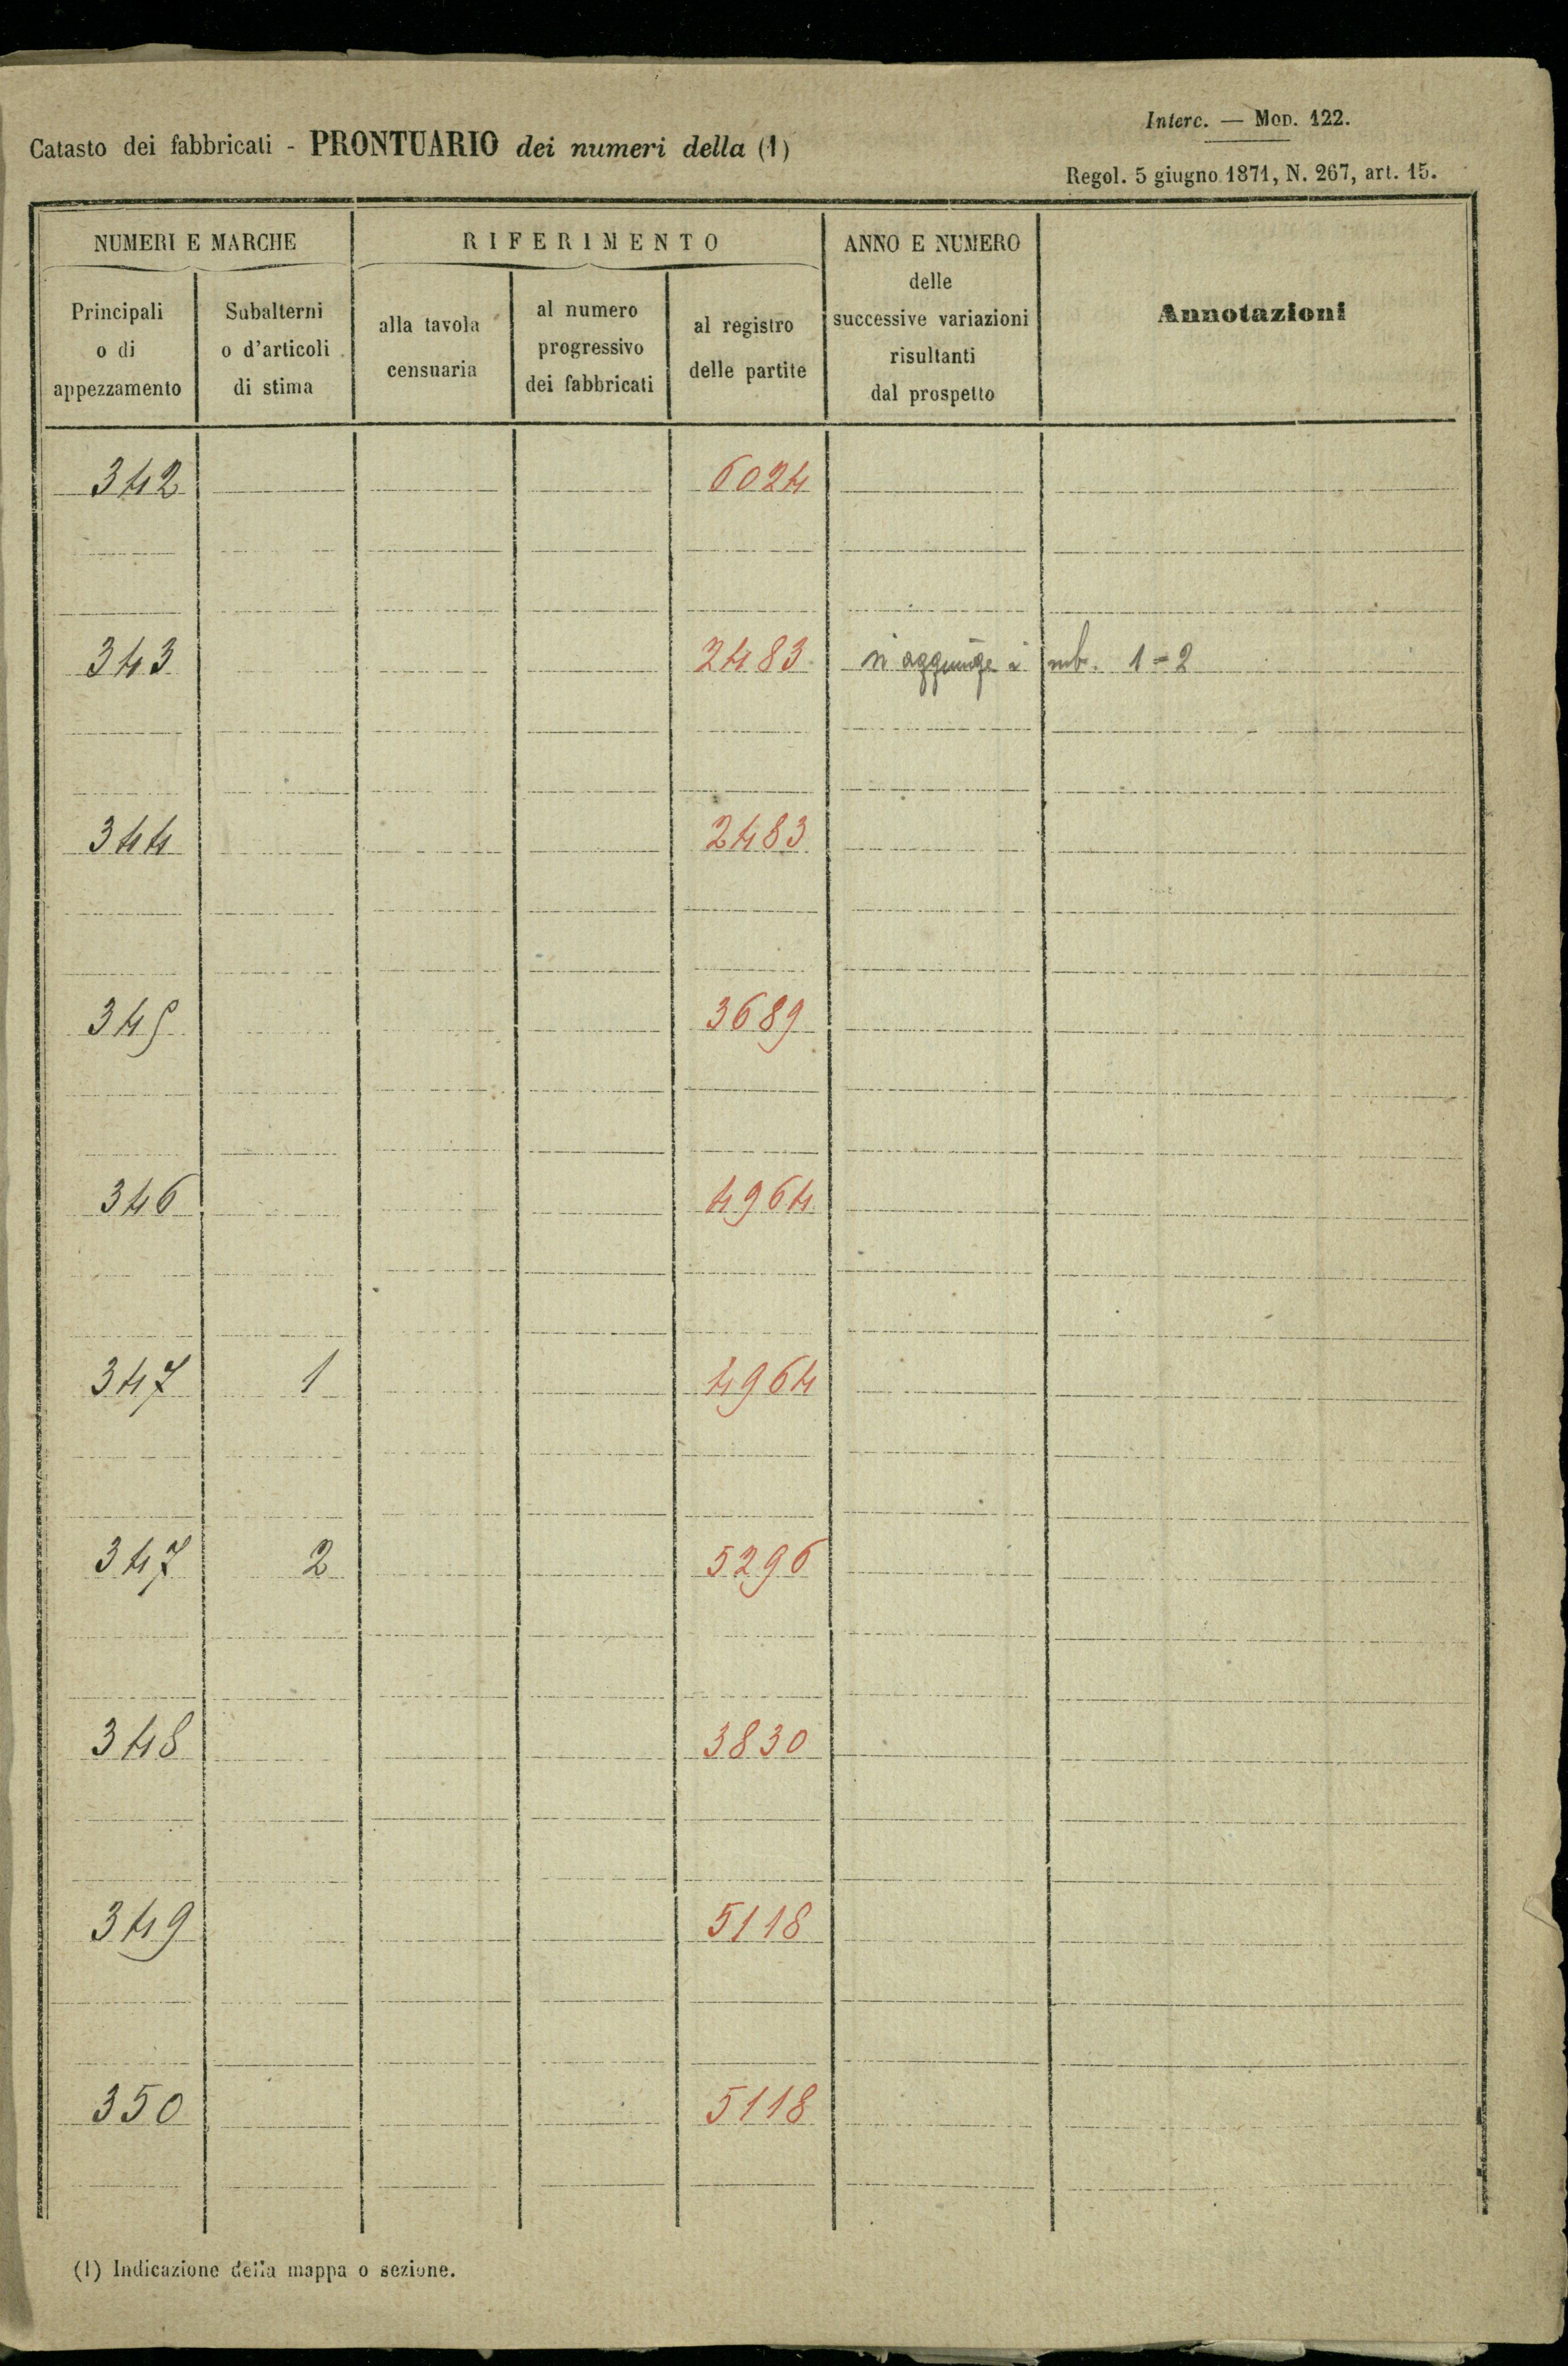 Interc. — Mod. 122.
Catasto dei fabbricati - PRONTUARIO dei numeri della (1)
Regol. 5 giugno 1871, N. 267, art. 15.
NUMERI E MARCHE
Principali
o di
appezzamento
Subalterni
o d'articoli
di stima
RIFERIMENTO
alla tavola
censuaria
al numero
progressivo
dei fabbricati
al registro
delle partite
ANNO E NUMERO
delle
successive variazioni
risultanti
dal prospetto
Annotazioni
342 6024
343 2483 si aggiunge i sub. 1-2
344 2483
345 3689
346 4964
347 1 4964
347 2 5296
348 3830
349 5118
350 5118
(1) Indicazione della mappa o sezione.